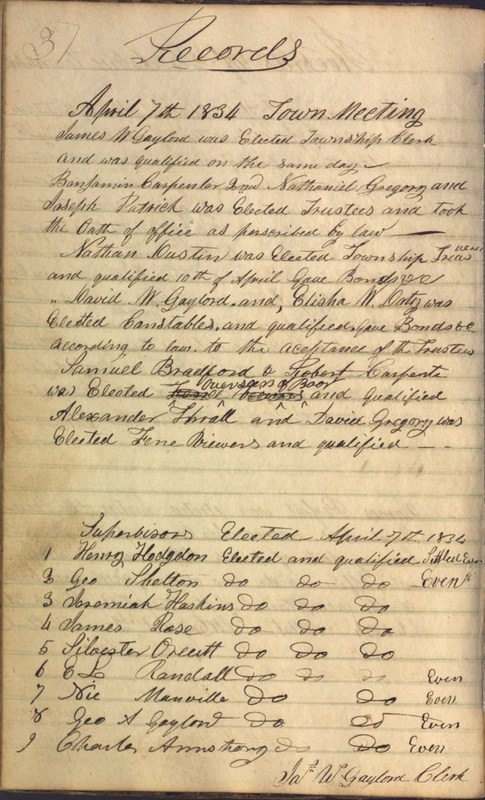 37
Records
April 7th 1834 Town Meeting
James W Gaylord was Elected Township Clerk
and was qualified on the same day
Benjamin Carpenter 2nd Nathaniel Gregory and
Joseph Patrick was Elected Trustees and took
the Oath of office as perscribed by law
Nathan Dustin was Elected Township
and qualified 10th of April Gave Bonds &c
" David W. Gaylord. and, Elisha W. was
Elected Constables, and qualified, Gave Bonds &c
according to law. to the aceptance of the Trustees
Samuel Bradford & Robert Carpente
Overseers of Poor
was Elected and qualified
Alexander Thrall and David Gregory was
Elected Fene Viewers and qualified
Supervisors Elected April 7th 1834
1 Henry Hodgdon Elected and qualified Settled Even
2 Geo Shelton do do do Even
3 Jeremiah Haskins do do do
4 James Rose do do do
5 Silvester Orcutt do do do
6 E L Randall do do do Even
7 Nic Manville do do Even
8 Geo A Gaylord do do Even
9 Charles Armstrong do do Even
Jas W Gaylord Clerk